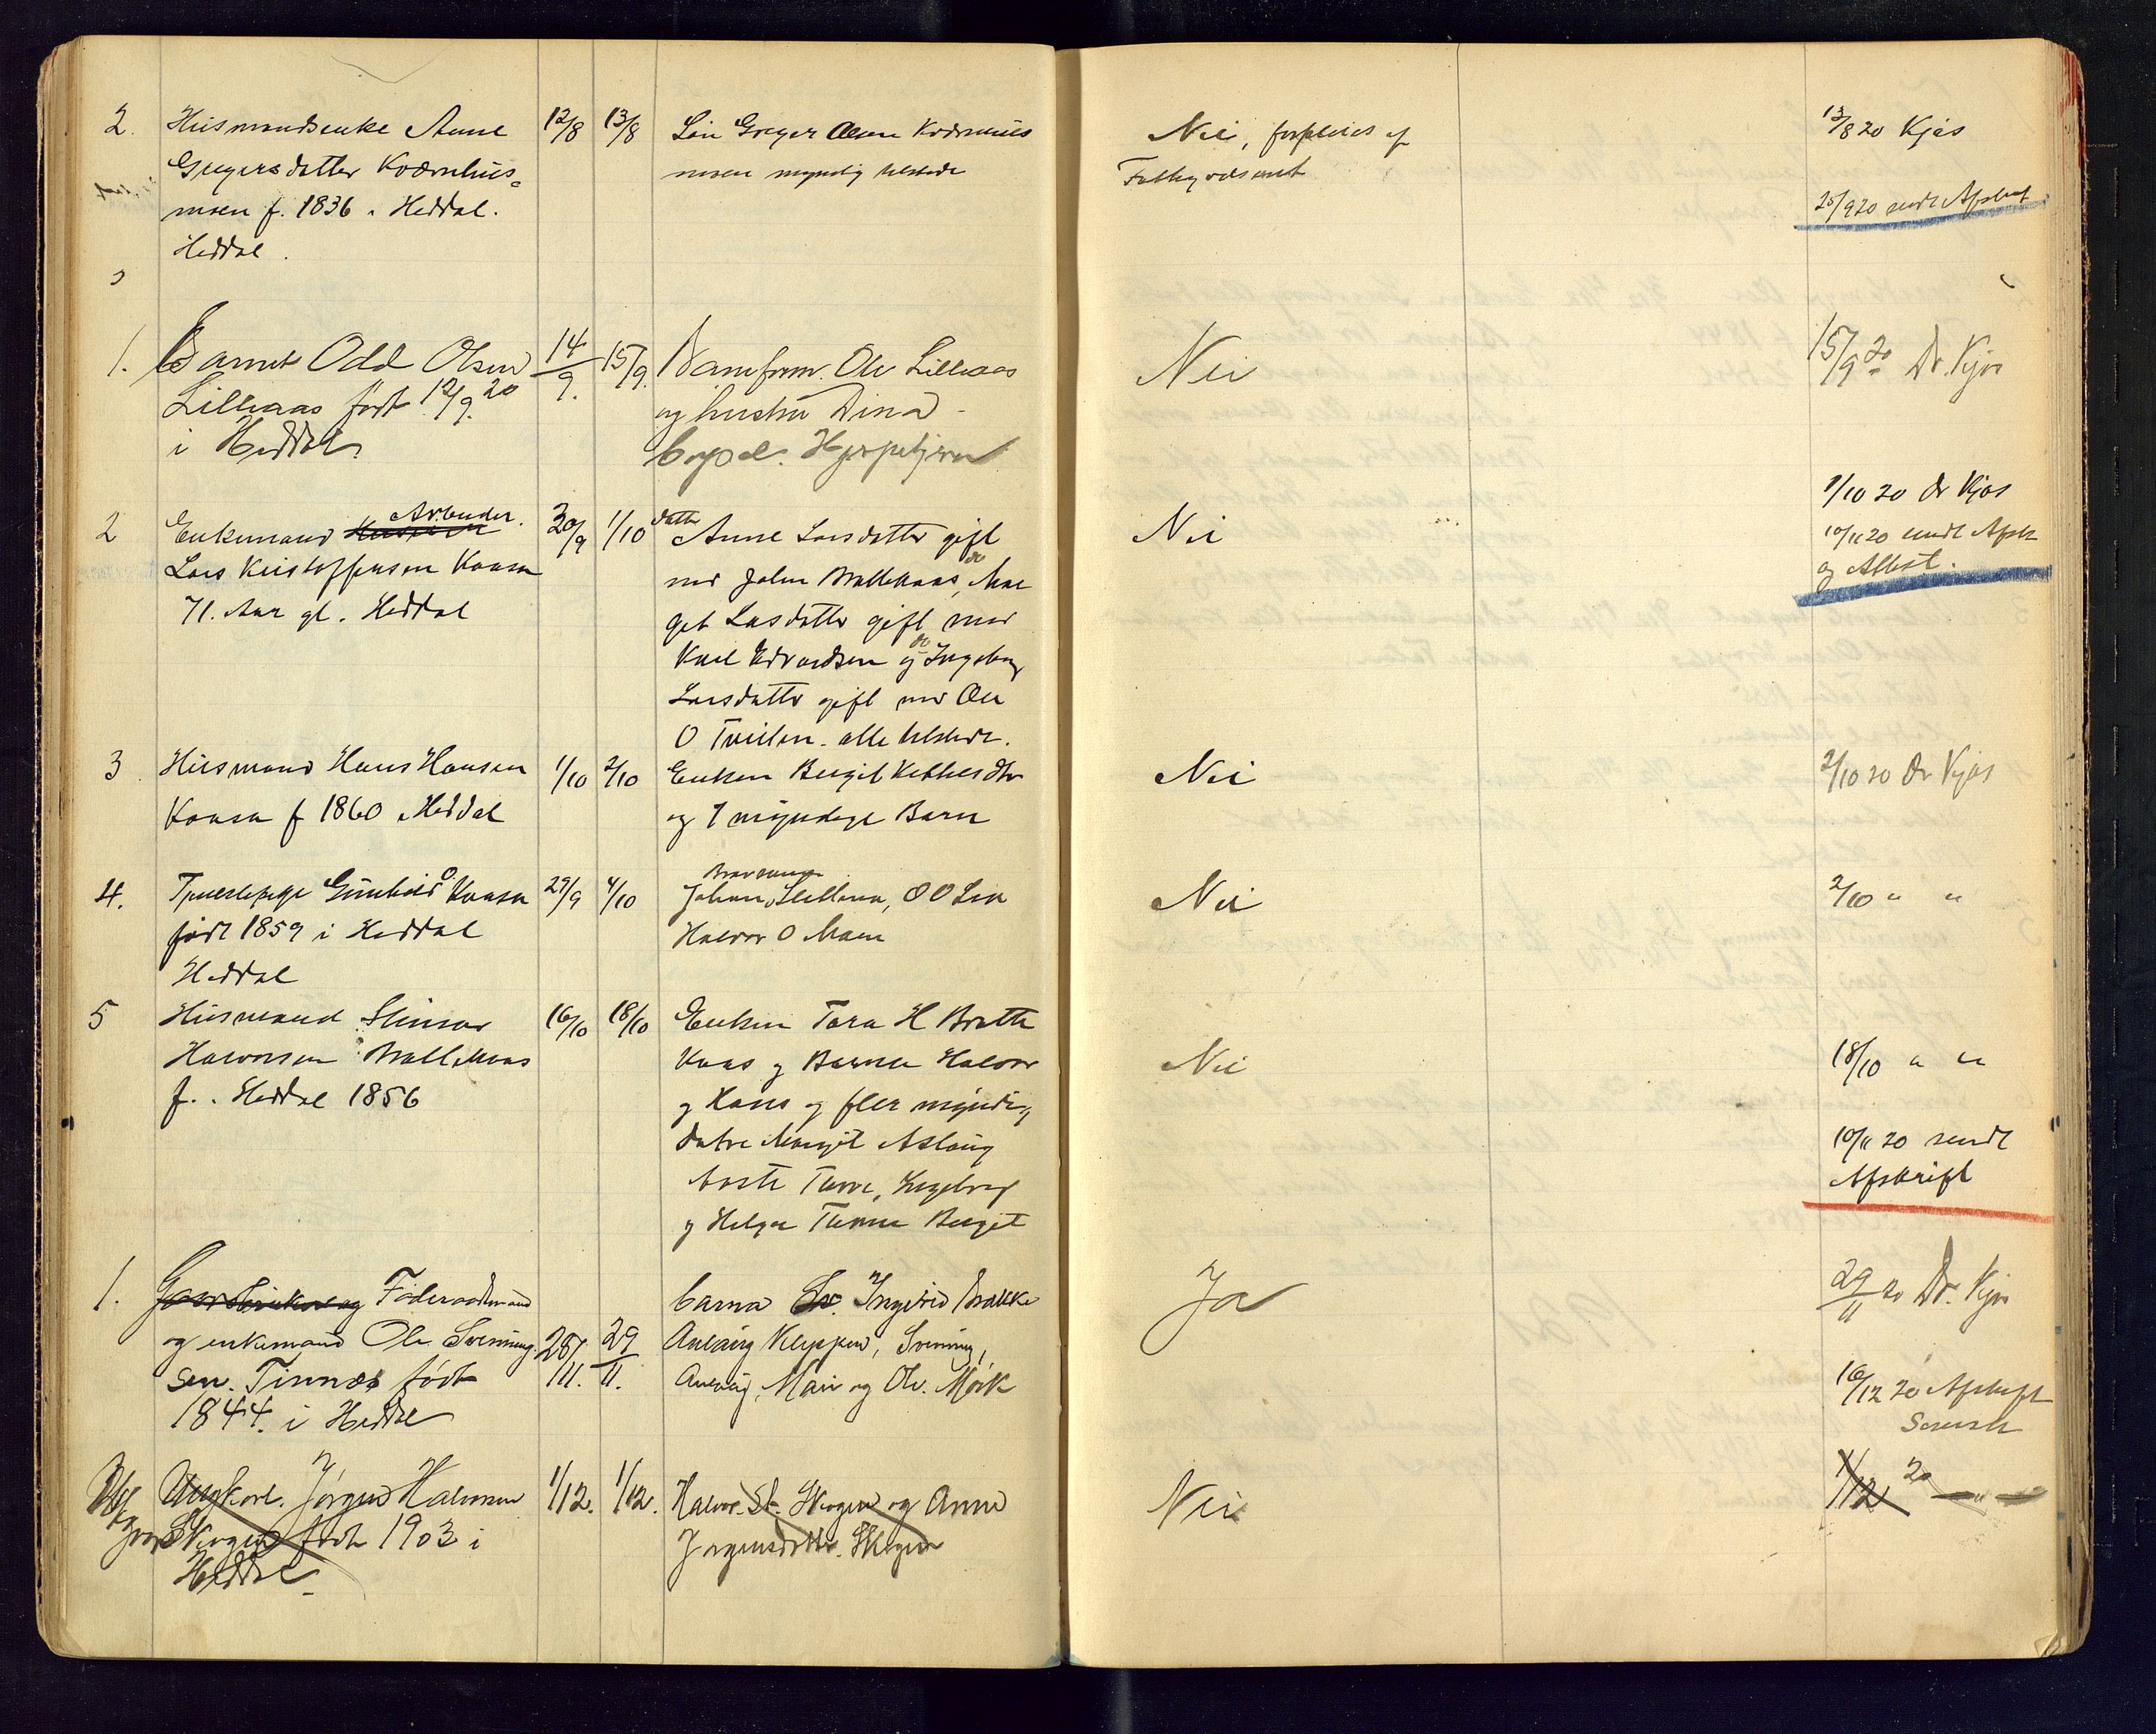 2. Husmandsenke Anne 12/8 13/8 Søn Greger Olsen Kværnhus Nei, forpleies af 13/8 20 Kjos
Gregersdatter Kværnhus= moen myndig tilstede
moen f. 1836 i Heddal. 25/9 20 sendt Afskrift
Heddal.
1. Barnet Odd Olsen 14/9. 15/9. Barnefrm. Ole Lilleaas Nei 15/9 20 Dr. Kjos
Lilleaas født 12/9. 20 og hustru Dina
i Heddal. Bopæl. Hjerpetjern
2 Enkemand Arbeider. 30/9 1/10 datter Anne Larsdatter gift Nei 1/10 20 Dr Kjos
Lars Kristoffersen Kaasa med Johan Brattekaas, do Mar 10/11 20 sendt Afskr
71. Aar gl. Heddal get Larsdatter gift med og Attest.
Karl Edvardsen og do Ingeborg
Larsdatter gift med Ole
O Tveiten. alle tilstede.
3 Husmand Hans Hansen 1/10 2/10 Enken Bergit Kittilsdtr Nei 2/10 20 Dr Kjos
Kaasa f 1860 i Heddal og 7 myndige Barn
4. Tjenestepige Gunhild O Kaasa 29/9 4/10 Johan Lilleaas, O O Lia Nei 2/10 " "
født 1859 i Heddal Halvor O Moen
Heddal
5 Husmand Steinar 16/10 18/10 Enken Tora H Bratte Nei 18/10 " "
Halvorsen Brattekaas kaas og Barnene Halvor
f. i Heddal 1856 og Hans og flere myndig
døtre Margit Aslaug 10/11 20 sendt
Aaste Turve, Ingeborg Afskrift
og Helga Bergit
1. Gaardbruker og Føderaadsmand barna Ingebrid Bakke Ja 29/11 20 Dr. Kjos
og enkemand Ole Svenning 28/11. 29/11. Anlaug Kleppen, Svenning,
sen. Tinnes født Mari og Ole. Mørk 16/12 20 Afskrift
1844. i Heddal Sorensk
Ungkarl. Jørgen Halvorsen 1/12. 1/12. Halvor. St. Skogen og Anne Nei 1/12 20 — " —
Skogen født 1903 i Jørgensdatter. Skogen
Heddal